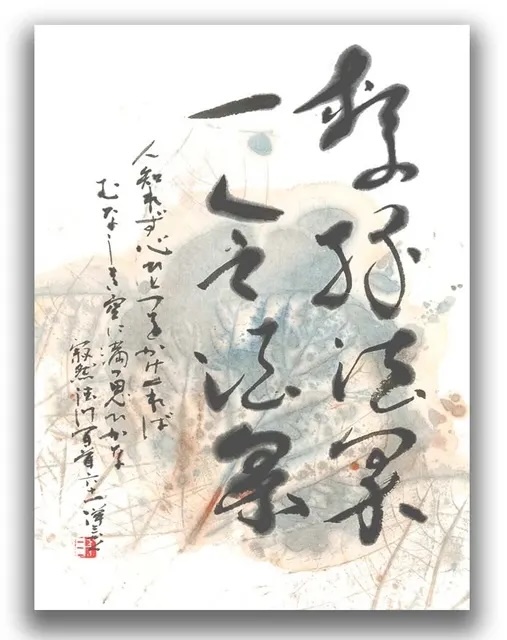 繋縁法界
一念法界
人知れず心ひとつをかけくれば
むなしき空に満つ思ひかな
寂然法門百首六十一